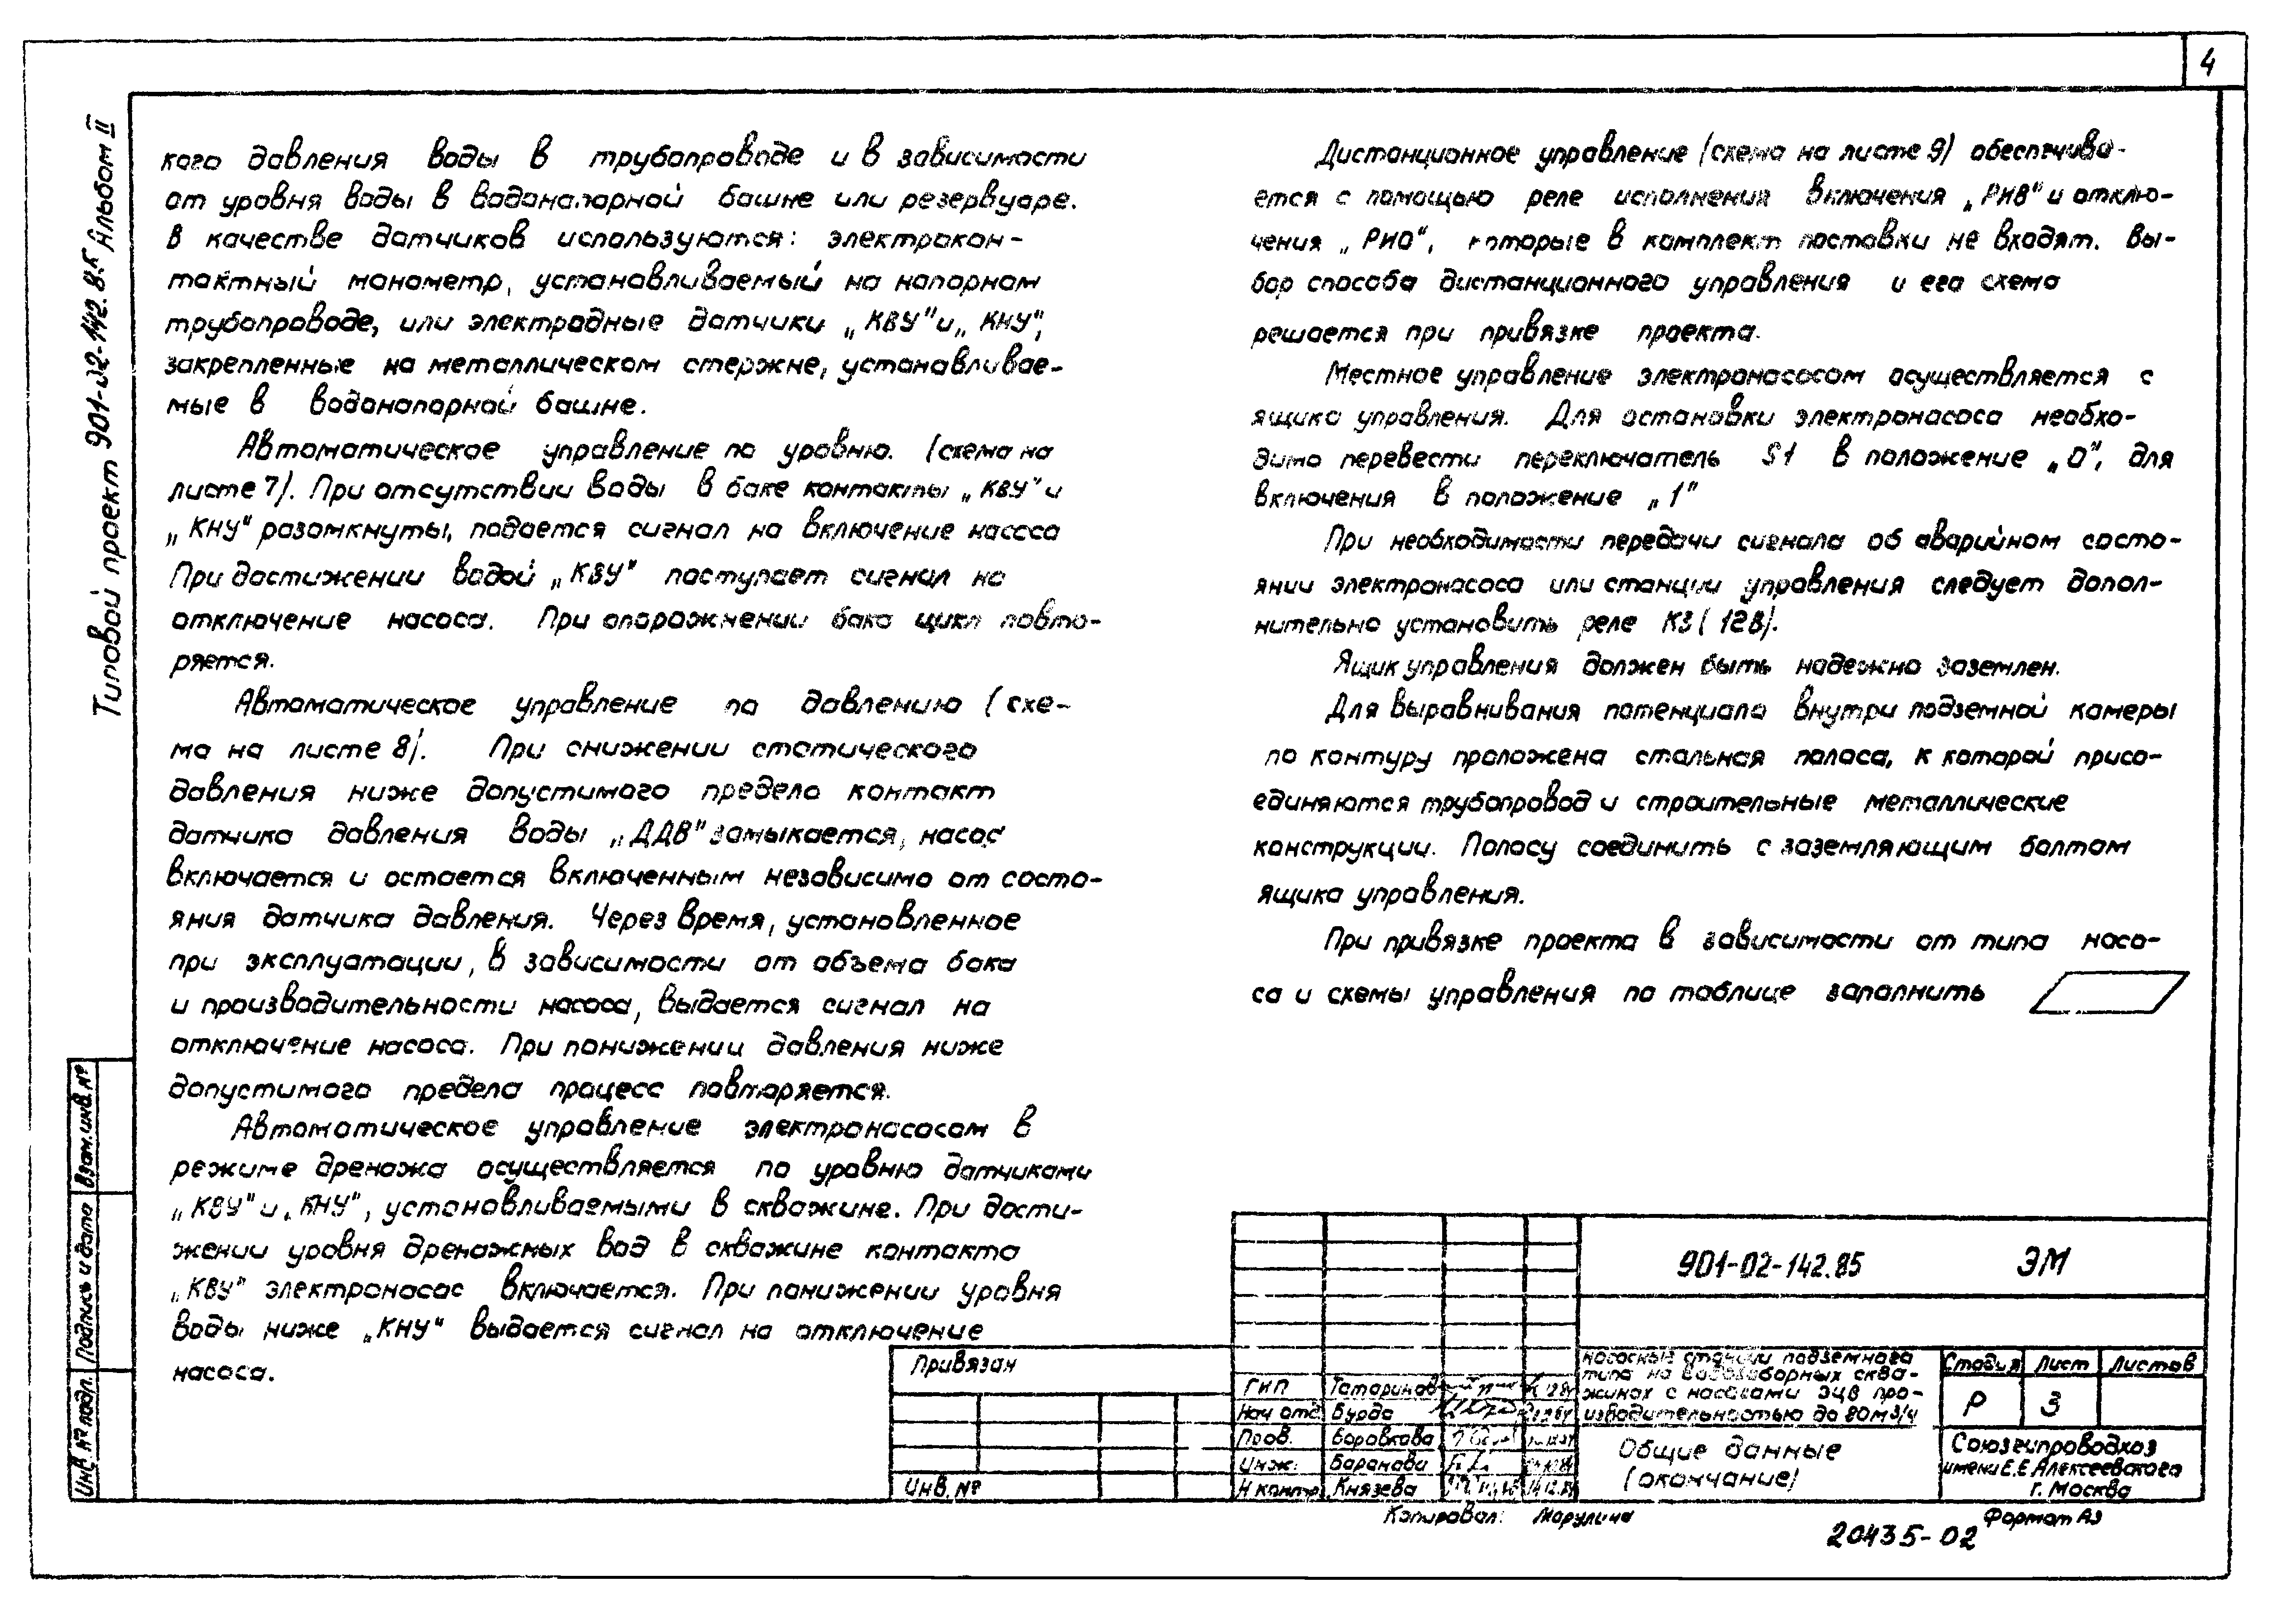 4
Типовой проект 901-02-142.85 Альбом II
кого давления воды в трубопроводе и в зависимости
от уровня воды в водонапорной башне или резервуаре.
В качестве датчиков используются: электрокон-
тактный манометр, устанавливаемый на напорном
трубопроводе, или электродные датчики „КВУ" и „КНУ",
закрепленные на металлическом стержне, устанавливае-
мые в водонапорной башне.
Автоматическое управление по уровню. (схема на
листе 7). При отсутствии воды в баке контакты „КВУ" и
„КНУ" разомкнуты, подается сигнал на включение насоса
При достижении водой „КВУ" поступает сигнал на
отключение насоса. При опорожнении бака цикл повто-
ряется.
Автоматическое управление по давлению (схе-
ма на листе 8). При снижении статического
давления ниже допустимого предела контакт
датчика давления воды „ДДВ" замыкается, насос
включается и остается включенным независимо от состо-
яния датчика давления. Через время, установленное
при эксплуатации, в зависимости от объема бака
и производительности насоса, выдается сигнал на
отключение насоса. При понижении давления ниже
допустимого предела процесс повторяется.
Автоматическое управление электронасосом в
режиме дренажа осуществляется по уровню датчиками
„КВУ" и „КНУ", устанавливаемыми в скважине. При дости-
жении уровня дренажных вод в скважине контакта
„КВУ" электронасос включается. При понижении уровня
воды ниже „КНУ" выдается сигнал на отключение
насоса.
Дистанционное управление (схема на листе 9) обеспечива-
ется с помощью реле исполнения включения „РИВ" и отклю-
чения „РИО", которые в комплект поставки не входят. Вы-
бор способа дистанционного управления и его схема
решается при привязке проекта.
Местное управление электронасосом осуществляется с
ящика управления. Для остановки электронасоса необхо-
димо перевести переключатель S1 в положение „0", для
включения в положение „1"
При необходимости передачи сигнала об аварийном состо-
янии электронасоса или станции управления следует допол-
нительно установить реле К3 (12В).
Ящик управления должен быть надежно заземлен.
Для выравнивания потенциала внутри подземной камеры
по контуру проложена стальная полоса, к которой присо-
единяются трубопровод и строительные металлические
конструкции. Полосу соединить с заземляющим болтом
ящика управления.
При привязке проекта в зависимости от типа насо-
са и схемы управления по таблице заполнить
Взам.инв.№
Подпись и дата
Инв. № подл.
Привязан
Инв. №
ГИП Татаринов
Нач отд Бурда
Пров. Боровкова
Инж. Баранова
Н контр. Князева
901-02-142.85 ЭМ
насосные станции подземного
типа на водозаборных сква-
жинах с насосами ЭЦВ про-
изводительностью до 80м3/ч
Общие данные
(окончание)
Стадия Лист Листов
Р 3
Союзгипроводхоз
имени Е.Е.Алексеевского
г. Москва
Копировал: Марулина
20435-02
Формат А3